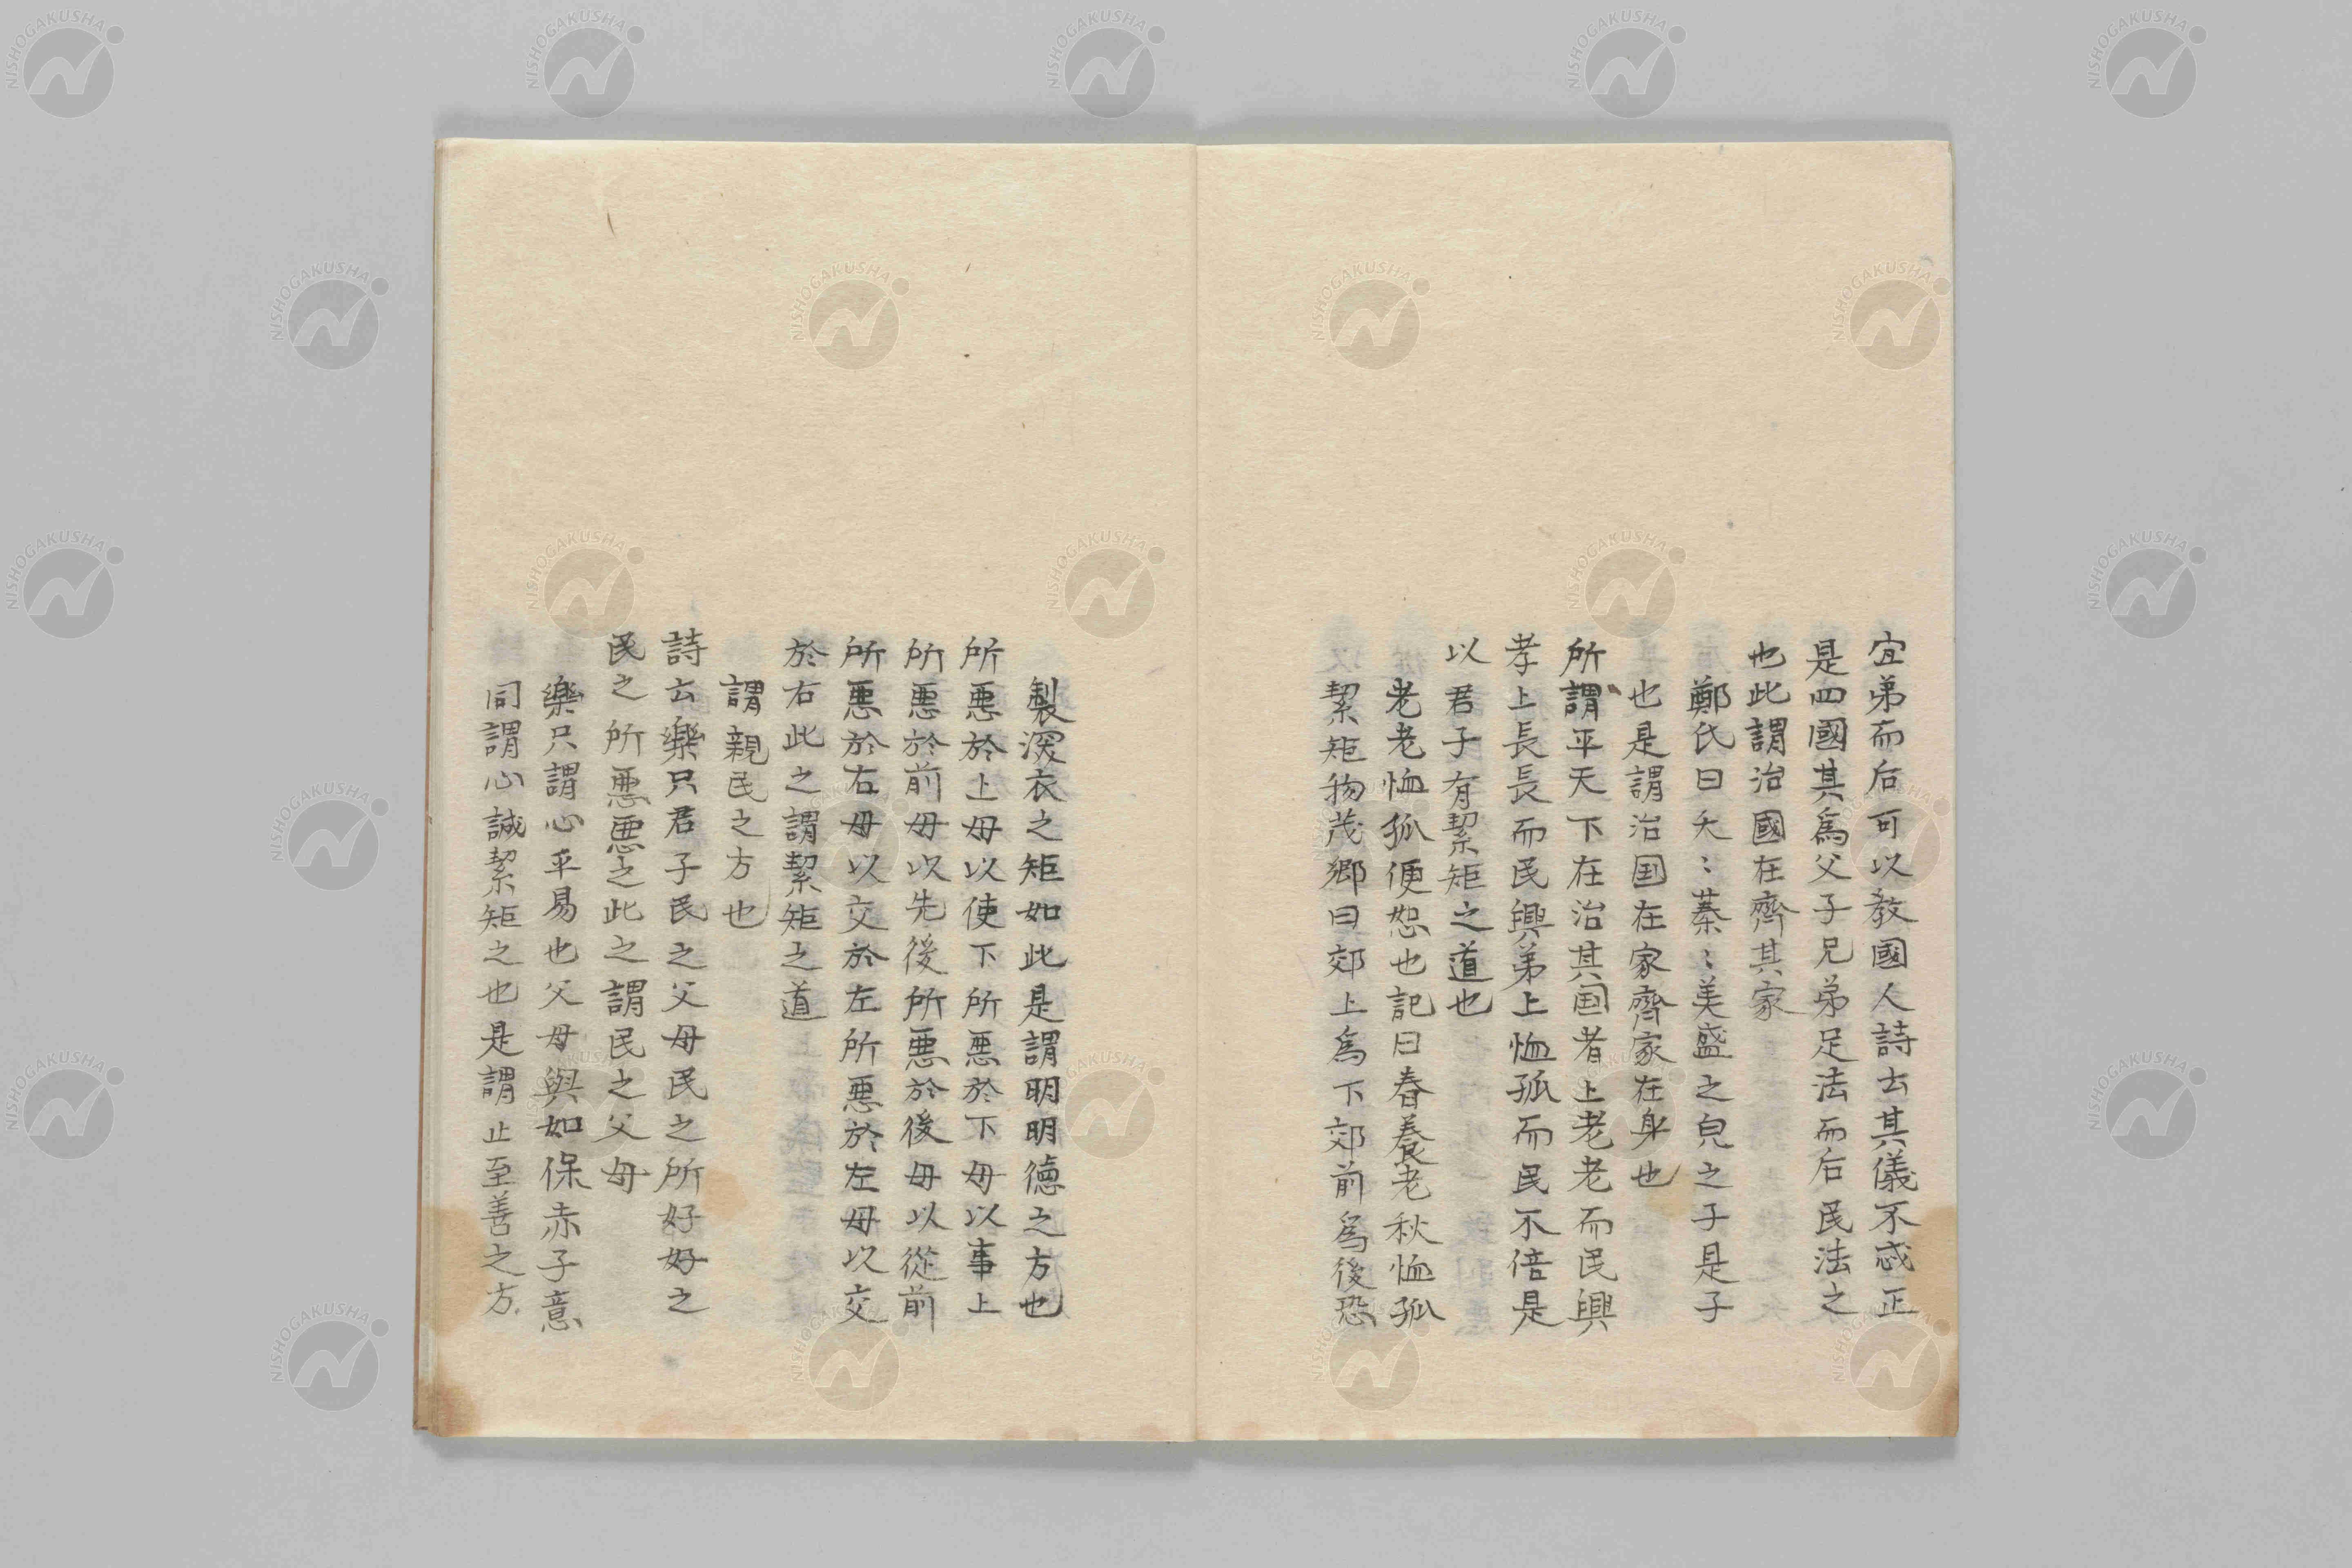 宜弟而后可以教國人詩云其儀不忒正
是四國其爲父子兄弟足法而后民法之
也此謂治國在齊其家
鄭氏曰夭〻蓁〻美盛之皃之子是子
也是謂治国在家齊家在身也
所謂平天下在治其国者上老老而民興
孝上長長而民興弟上恤孤而民不倍是
以君子有絜矩之道也
老老恤孤便恕也記曰春養老秋恤孤
絜矩物茂鄉曰郊上爲下郊前爲後恐
製深衣之矩如此是謂明明德之方也
所惡於上毋以使下所惡於下毋以事上
所惡於前毋以先後所惡於後毋以從前
所惡於右毋以交於左所惡於左毋以交
於右此之謂絜矩之道
謂親民之方也
詩云樂只君子民之父母民之所好好之
民之所惡惡之此之謂民之父母
樂只謂心平易也父母與如保赤子意
同謂心誠絜矩之也是謂止至善之方
NISHOGAKUSHA